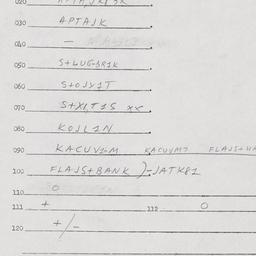 020
030 APTAJK
040 —
050 S+LUG-BR1K
060 S+OJY1T
070 S+XLT1S xx
080 KOJL1N
090 KACUV1-M KACUVM? FLAJS+HA
100 FLAJS+BANK )-JATK81
110 O
111 + 112 O
120 +/-